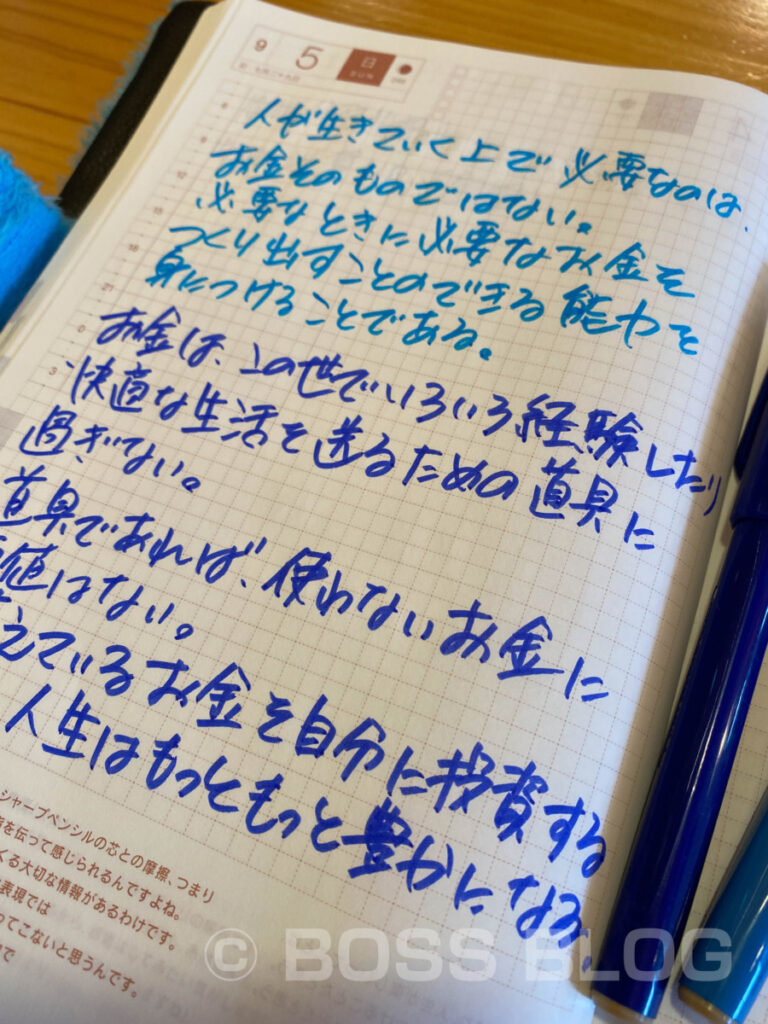 9 5 日
SUN
人が生きていく上で必要なのは、
お金そのものではない。
必要なときに必要なお金を
つくり出すことのできる能力を
身につけることである。
お金は、この世でいろいろ経験したり
快適な生活を送るための道具に
過ぎない。
道具であれば、使わないお金に
値はない。
えているお金を自分に投資する
人生はもっともっと豊かになる。
シャープペンシルの芯との摩擦、つまり
を伝って感じられるんですよね。
くる大切な情報があるわけです。
表現では
ってこないと思うんです。
で
© BOSS BLOG